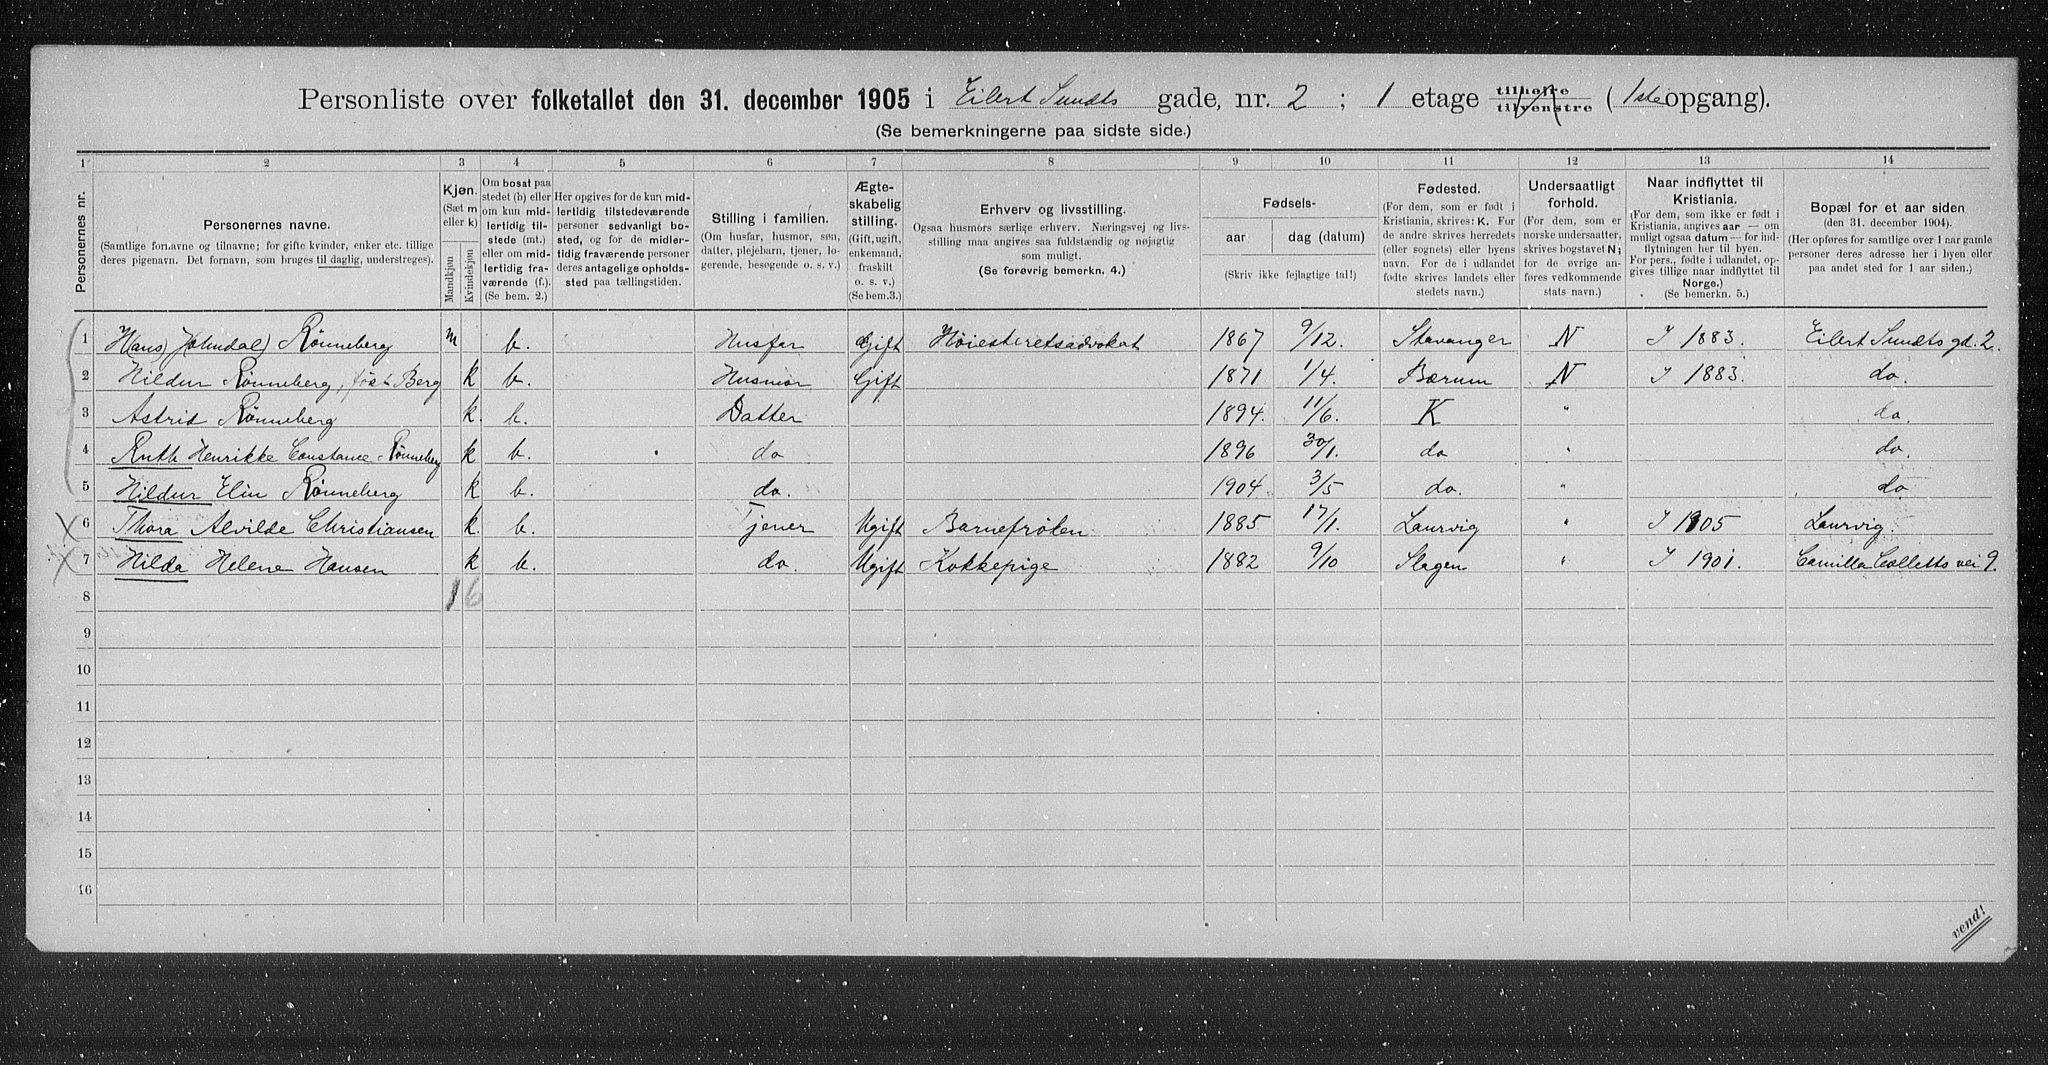 Personliste over folketallet den 31. december 1905 i Eilert Sundts gade, nr. 2 ; 1 etage tilhøire tilvenstre (1ste opgang).
(Se bemerkningerne paa sidste side.)
1 2 3 4 5 6 7 8 9 10 11 12 13 14
Personernes nr.
Personernes navne.
(Samtlige fornavne og tilnavne; for gifte kvinder, enker etc. tillige
deres pigenavn. Det fornavn, som bruges til daglig, understreges).
Kjøn.
(Sæt m
eller k)
Mandkjøn
Kvindekjøn
Om bosat paa
stedet (b) eller
om kun mid-
lertidig til-
stede (mt.)
eller om mid-
lertidig fra-
værende (f.).
(Se bem. 2.)
Her opgives for de kun mid-
lertidig tilstedeværende
personer sedvanligt bo-
sted, og for de midler-
tidig fraværende personer
deres antagelige opholds-
sted paa tællingstiden.
Stilling i familien.
(Om husfar, husmor, søn,
datter, plejebarn, tjener, lo-
gerende, besøgende o. s. v.)
Ægte-
skabelig
stilling.
(Gift, ugift,
enkemand,
fraskilt
o. s. v.)
(Se bem.3.)
Erhverv og livsstilling.
Ogsaa husmors særlige erhverv. Næringsvej og livs-
stilling maa angives saa fuldstændig og nøjagtig
som muligt.
(Se forøvrig bemerkn. 4.)
Fødsels-
aar dag (datum)
(Skriv ikke fejlagtige tal!)
Fødested.
(For dem, som er født i
Kristiania, skrives: K. For
de andre skrives herredets
(eller sognets) eller byens
navn. For de i udlandet
fødte skrives landets eller
stedets navn.)
Undersaatligt
forhold.
(For dem, som er
norske undersaatter,
skrives bogstavet N;
for de øvrige an-
føres vedkommende
stats navn.)
Naar indflyttet til
Kristiania.
(For dem, som ikke er født i
Kristiania, angives aar — om
muligt ogsaa datum — for ind-
flytningen her til byen.
For pers., fødte i udlandet, op-
gives tillige naar indflyttet til
Norge.)
(Se bemerkn. 5.)
Bopæl for et aar siden
(den 31. december 1904).
(Her opføres for samtlige over 1 aar gamle
personer deres adresse her i byen eller
paa andet sted for 1 aar siden.)
1 Hans (Johndal) Rønneberg m b. Husfar Gift Høiesteretsadvokat 1867 9/12. Stavanger N I 1883. Eilert Sundts gd. 2.
2 Hildur Rønneberg, født Berg k b. Husmor Gift 1871 1/4. Bærum N I 1883. do.
3 Astrid Rønneberg k. b. Datter 1894. 11/6. K " do.
4 Ruth Henrikke Constance Rønneberg k b. do 1896 30/1. do " do.
5 Hildur Elin Rønneberg k b. do. 1904 3/5 do. " do
X 6 Thora Alvilde Christiansen k. b. Tjener Ugift Barnefrøken 1885 17/1. Laurvig " I 1905 Laurvig.
X 7 Hilda Helene Hansen k b. do. Ugift Kokkepige 1882 9/10 Slagen " I 1901. Camilla Colletts vei 9.
8 1 6
9
10
11
12
13
14
15
16
vend!